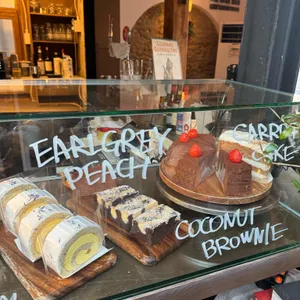 EARLGREY
PEACH
CARROT
CAKE
COCONUT
BROWNIE